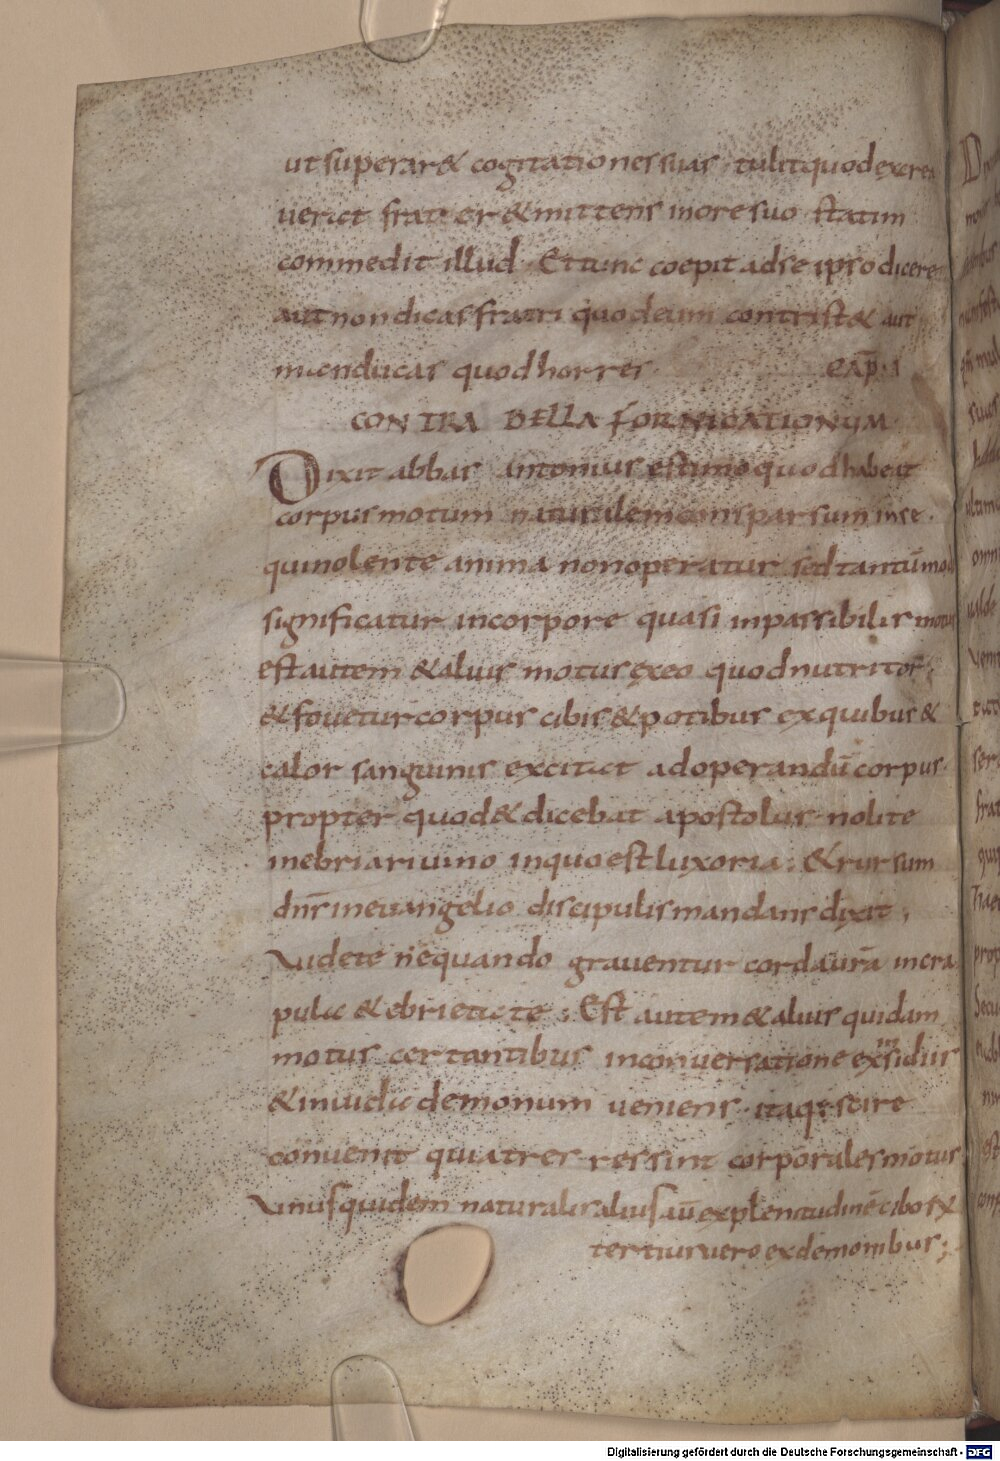 ut superar& cogitationes suas · tulit quod excrea
uerat frater & mittens in ore suo statim
commedit illud · Et tunc coepit ad se ipso dicere
aut non dicas fratri quod eum contrist& aut
manducas quod horres · cap̄ · i
CONTRA BELLA FORNICATIONUM
Dixit abbas antonius estimo quod habeat
corpus motum naturalem consparsum in se ·
qui nolente anima non operatur sed tantū mod
significatur in corpore quasi inpassibilis motus
est autem & alius motus ex eo quod nutritor;
& fouetur corpus cibis & potibus ex quibus &
calor sanguinis excitat ad operandū corpus ·
propter quod & dicebat apostolus · nolite
inebriari uino in quo est luxoria : & rursum
dn̄s in euangelio discipulis mandans dixit ,
Uidete nequando grauentur corda ur̄a in cra
pula & ebrietate ; Est autem & alius quidam
motus certantibus in conuersatione ex insidiis
& inuidia demonum ueniens · itaq; scire
conuenit quia tres res sint corporales motus
Unus quidem naturalis alius aū ex plenitudinē ciborx
tertius uero ex demonibus ;
Digitalisierung gefördert durch die Deutsche Forschungsgemeinschaft - DFG